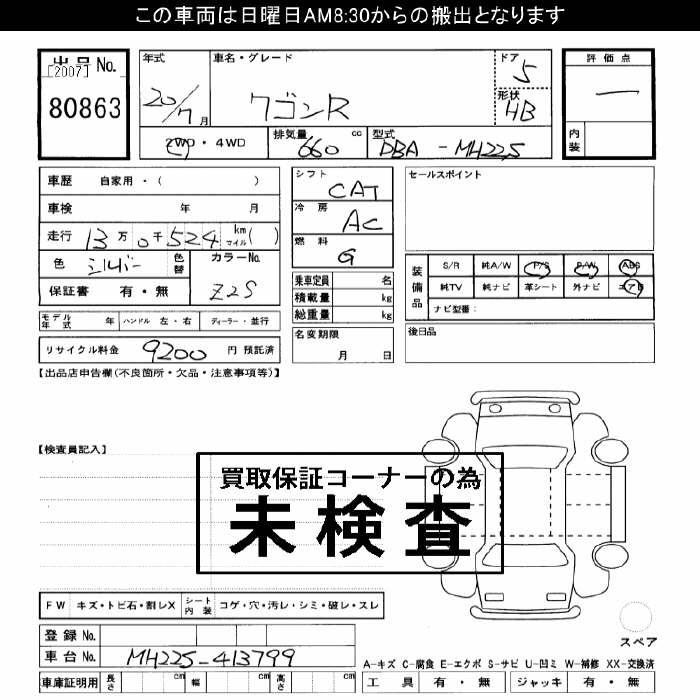 この車両は日曜日AM8:30からの搬出となります
出品No.
[2007]
80863
年式
20/7月
車名・グレード
ワゴンR
ドア
5
形状
HB
評価点
一
内装
2WD・4WD
排気量 660 cc
型式 DBA-MH22S
車歴 自家用・( )
車検 年 月
走行 13万0千524 km マイル( )
色 シルバー 色替
カラーNo. Z2S
保証書 有・無
シフト CAT
冷房 AC
燃料 G
乗車定員 名
積載量 kg
総重量 kg
セールスポイント
装備品
S/R 純A/W P/S P/W ABS
純TV 純ナビ 革シート 外ナビ エアB
ナビ型番:
モデル年式 年 ハンドル 左・右 ディーラー・並行
名変期限
月 日
後日品
リサイクル料金 9200 円 預託済
【出品店申告欄(不良箇所・欠品・注意事項等)】
【検査員記入】
買取保証コーナーの為
未検査
FW キズ・トビ石・割レX シート内装 コゲ・穴・汚レ・シミ・破レ・スレ
登録No.
車台No. MH22S-413799
車庫証明用 長さ cm 幅 cm 高さ cm
スペア
A-キズ C-腐食 E-エクボ S-サビ U-凹ミ W-補修 XX-交換済
工具 有・無 ジャッキ 有・無